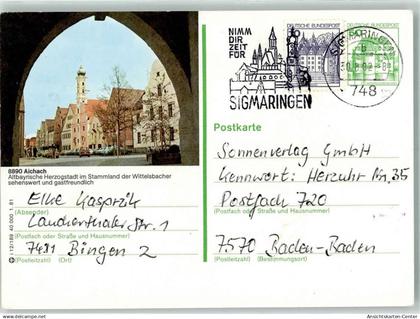 NIMM
DIR
ZEIT
FÜR
SIGMARINGEN
DEUTSCHE BUNDESPOST
DEUTSCHE BUNDESPOST
SIGMARINGEN
748
8890 Aichach
Altbayrische Herzogstadt im Stammland der Wittelsbacher
sehenswert und gastfreundlich
Elke Kasprzik
(Absender)
Lauchertthaler str. 1
(Postfach oder Straße und Hausnummer)
7481 Bingen 2
(Postleitzahl) (Ort)
Postkarte
Sonnenverlag GmbH
Kennwort: Herzuhr Nr. 35
Postfach 720
(Postfach oder Straße und Hausnummer)
7570 Baden-Baden
(Postleitzahl) (Bestimmungsort)
Ansichtskarten-Center